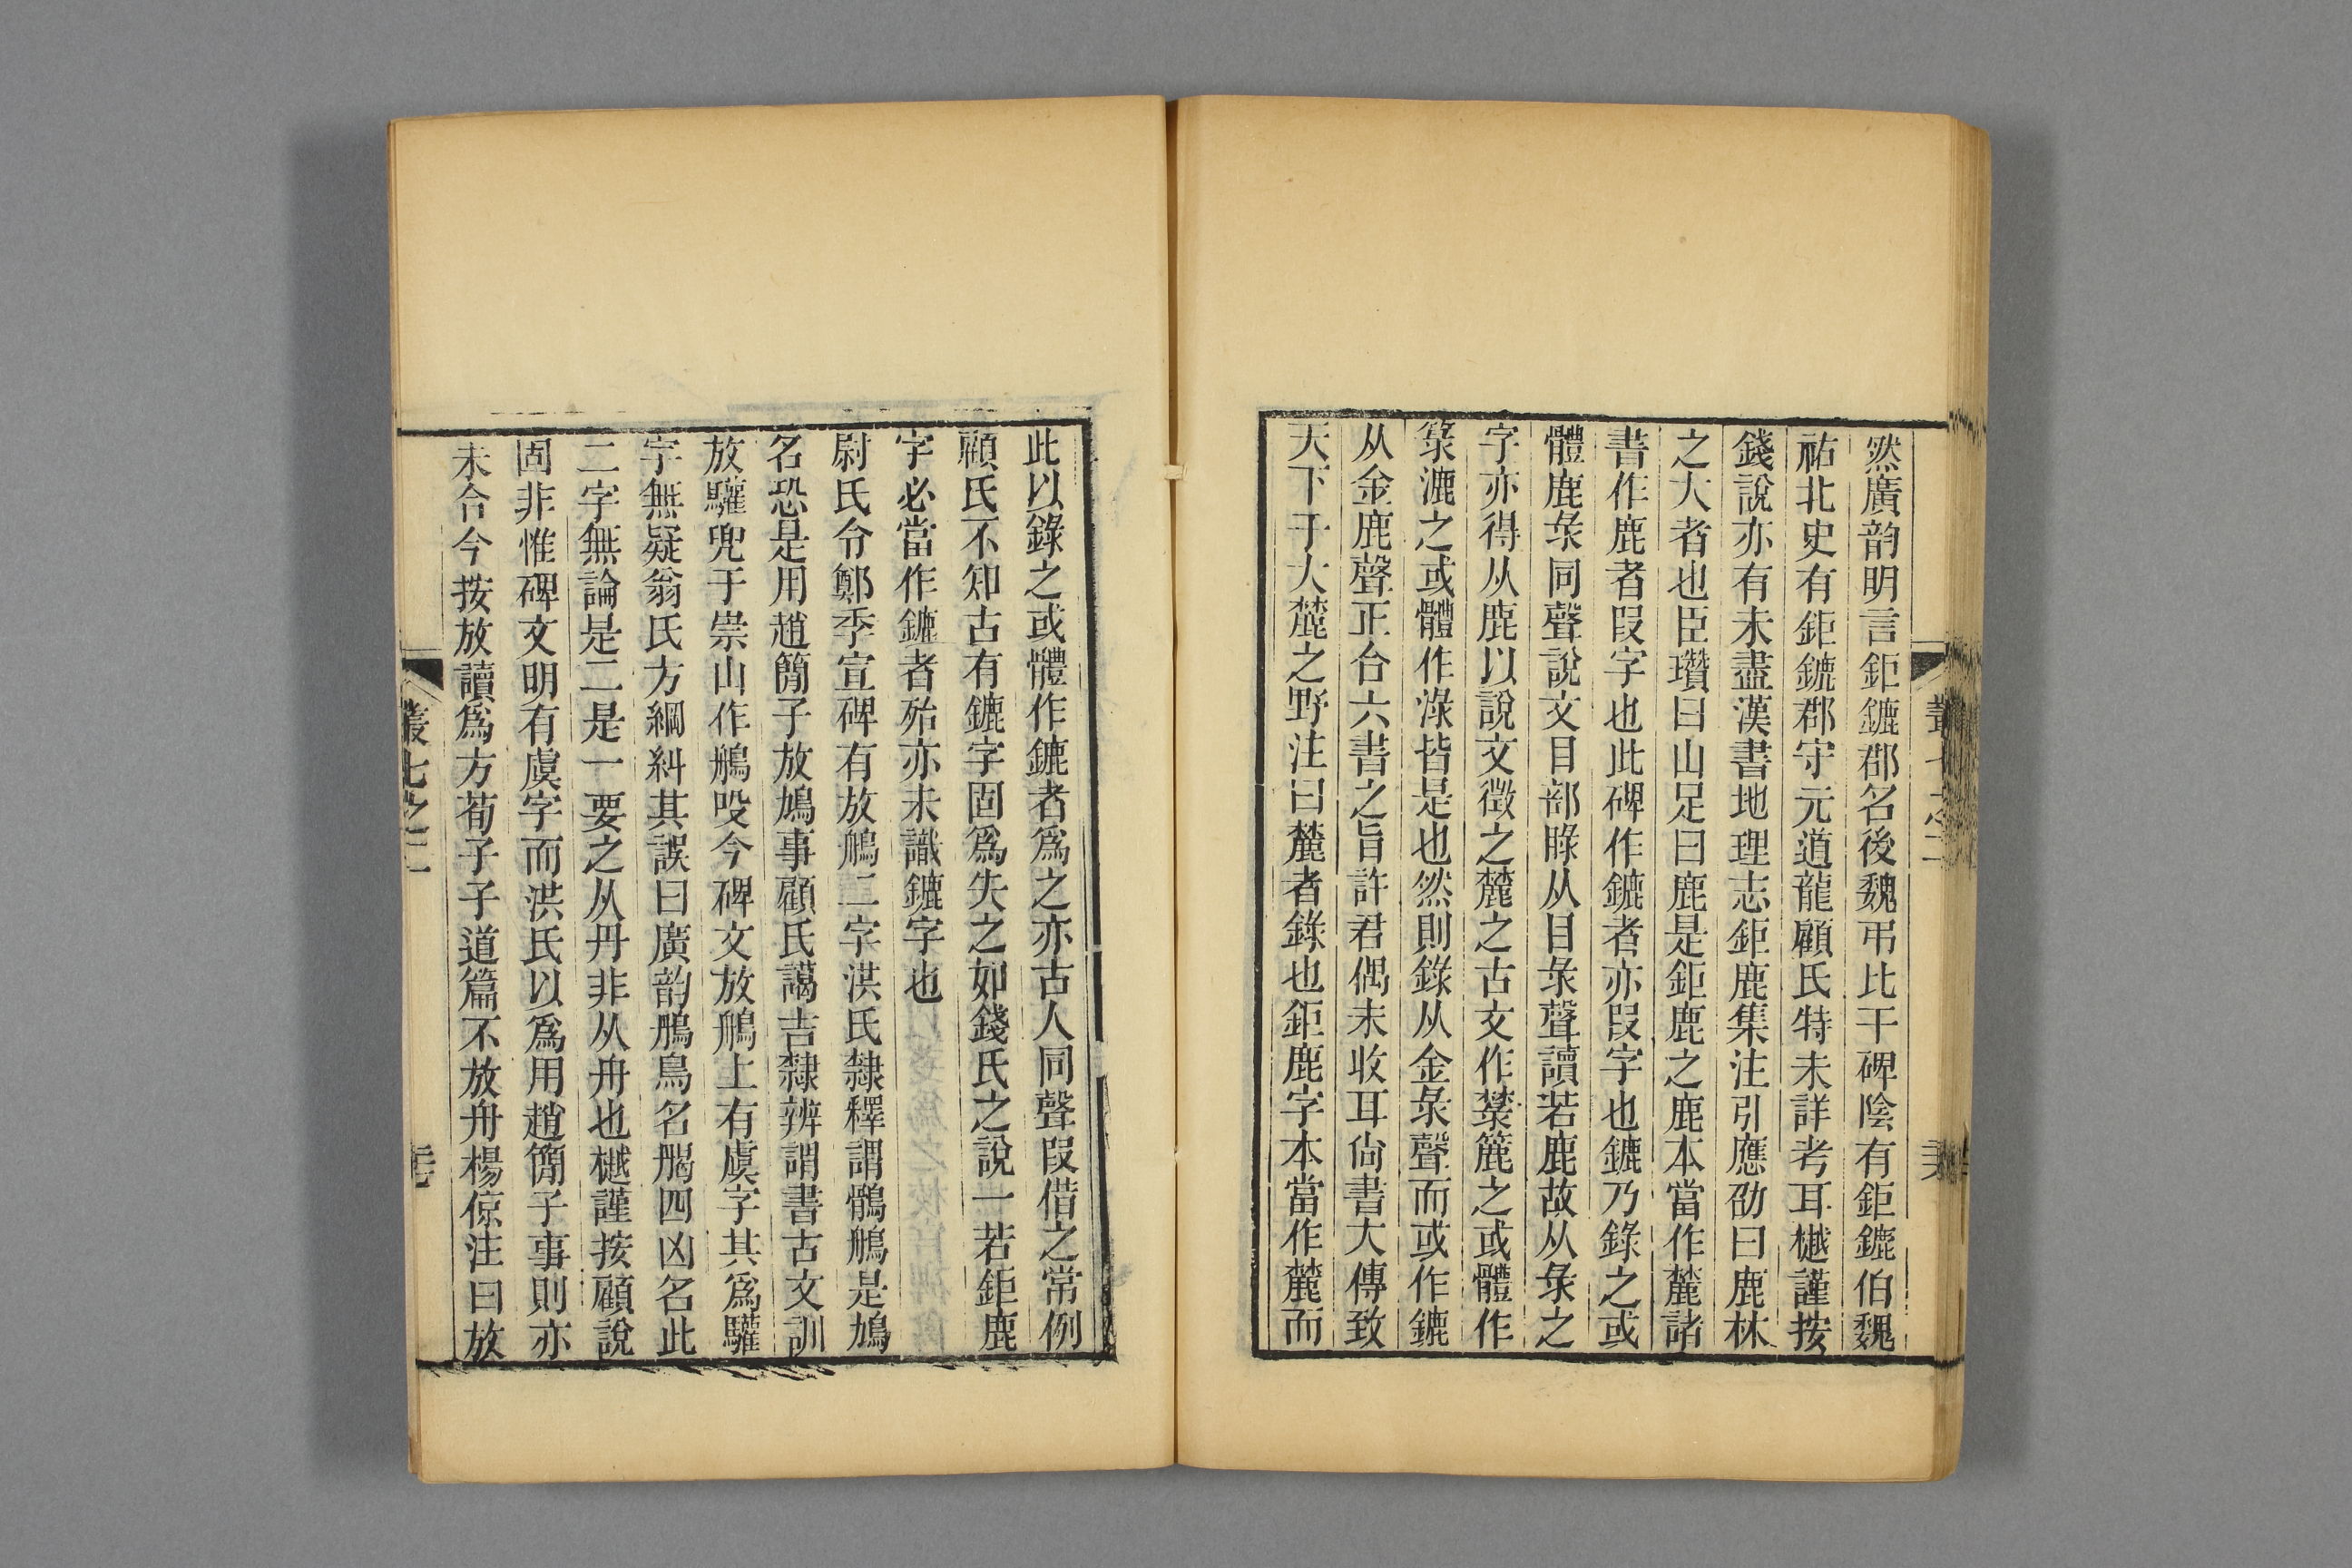 然廣韵明言鉅鏕郡名後魏弔比干碑陰有鉅鏕伯魏
祐北史有鉅鏕郡守元道龍顧氏特未詳考耳樾謹按
錢說亦有未盡漢書地理志鉅鹿集注引應劭曰鹿林
之大者也臣瓚曰山足曰鹿是鉅鹿之鹿本當作麓諸
書作鹿者叚字也此碑作鏕者亦叚字也鏕乃錄之或
體鹿彔同聲說文目部睩从目彔聲讀若鹿故从彔之
字亦得从鹿以說文徵之麓之古文作菉簏之或體作
箓漉之或體作淥皆是也然則錄从金彔聲而或作鏕
从金鹿聲正合六書之旨許君偶未收耳尙書大傳致
天下于大麓之野注曰麓者錄也鉅鹿字本當作麓而
此以錄之或體作鏕者爲之亦古人同聲叚借之常例
顧氏不知古有鏕字固爲失之如錢氏之說一若鉅鹿
字必當作鏕者殆亦未識鏕字也
尉氏令鄭季宣碑有放鵃二字洪氏隸釋謂鶻鵃是鳩
名恐是用趙簡子放鳩事顧氏藹吉隸辨謂書古文訓
放驩兜于崇山作鵃吺今碑文放鵃上有虞字其爲驩
字無疑翁氏方綱糾其誤曰廣韵鵃鳥名鵃四凶名此
二字無論是二是一要之从丹非从舟也樾謹按顧說
固非惟碑文明有虞字而洪氏以爲用趙簡子事則亦
未合今按放讀爲方荀子子道篇不放舟楊倞注曰放
叢七之二